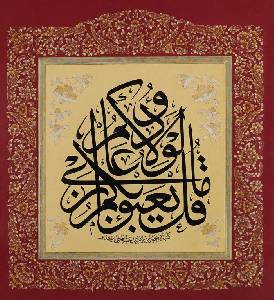 قل ما يعبؤا بكم ربي لولا دعاؤكم